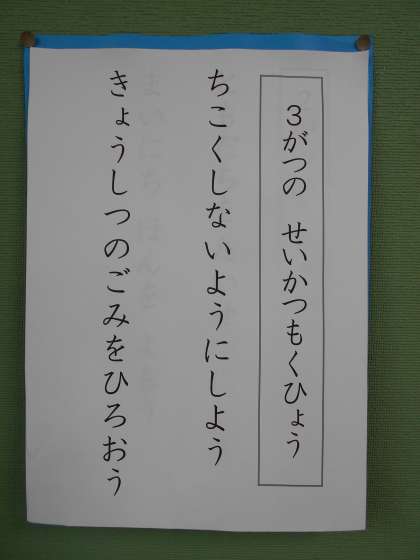 3がつの　せいかつもくひょう
ちこくしないようにしよう
きょうしつのごみをひろおう